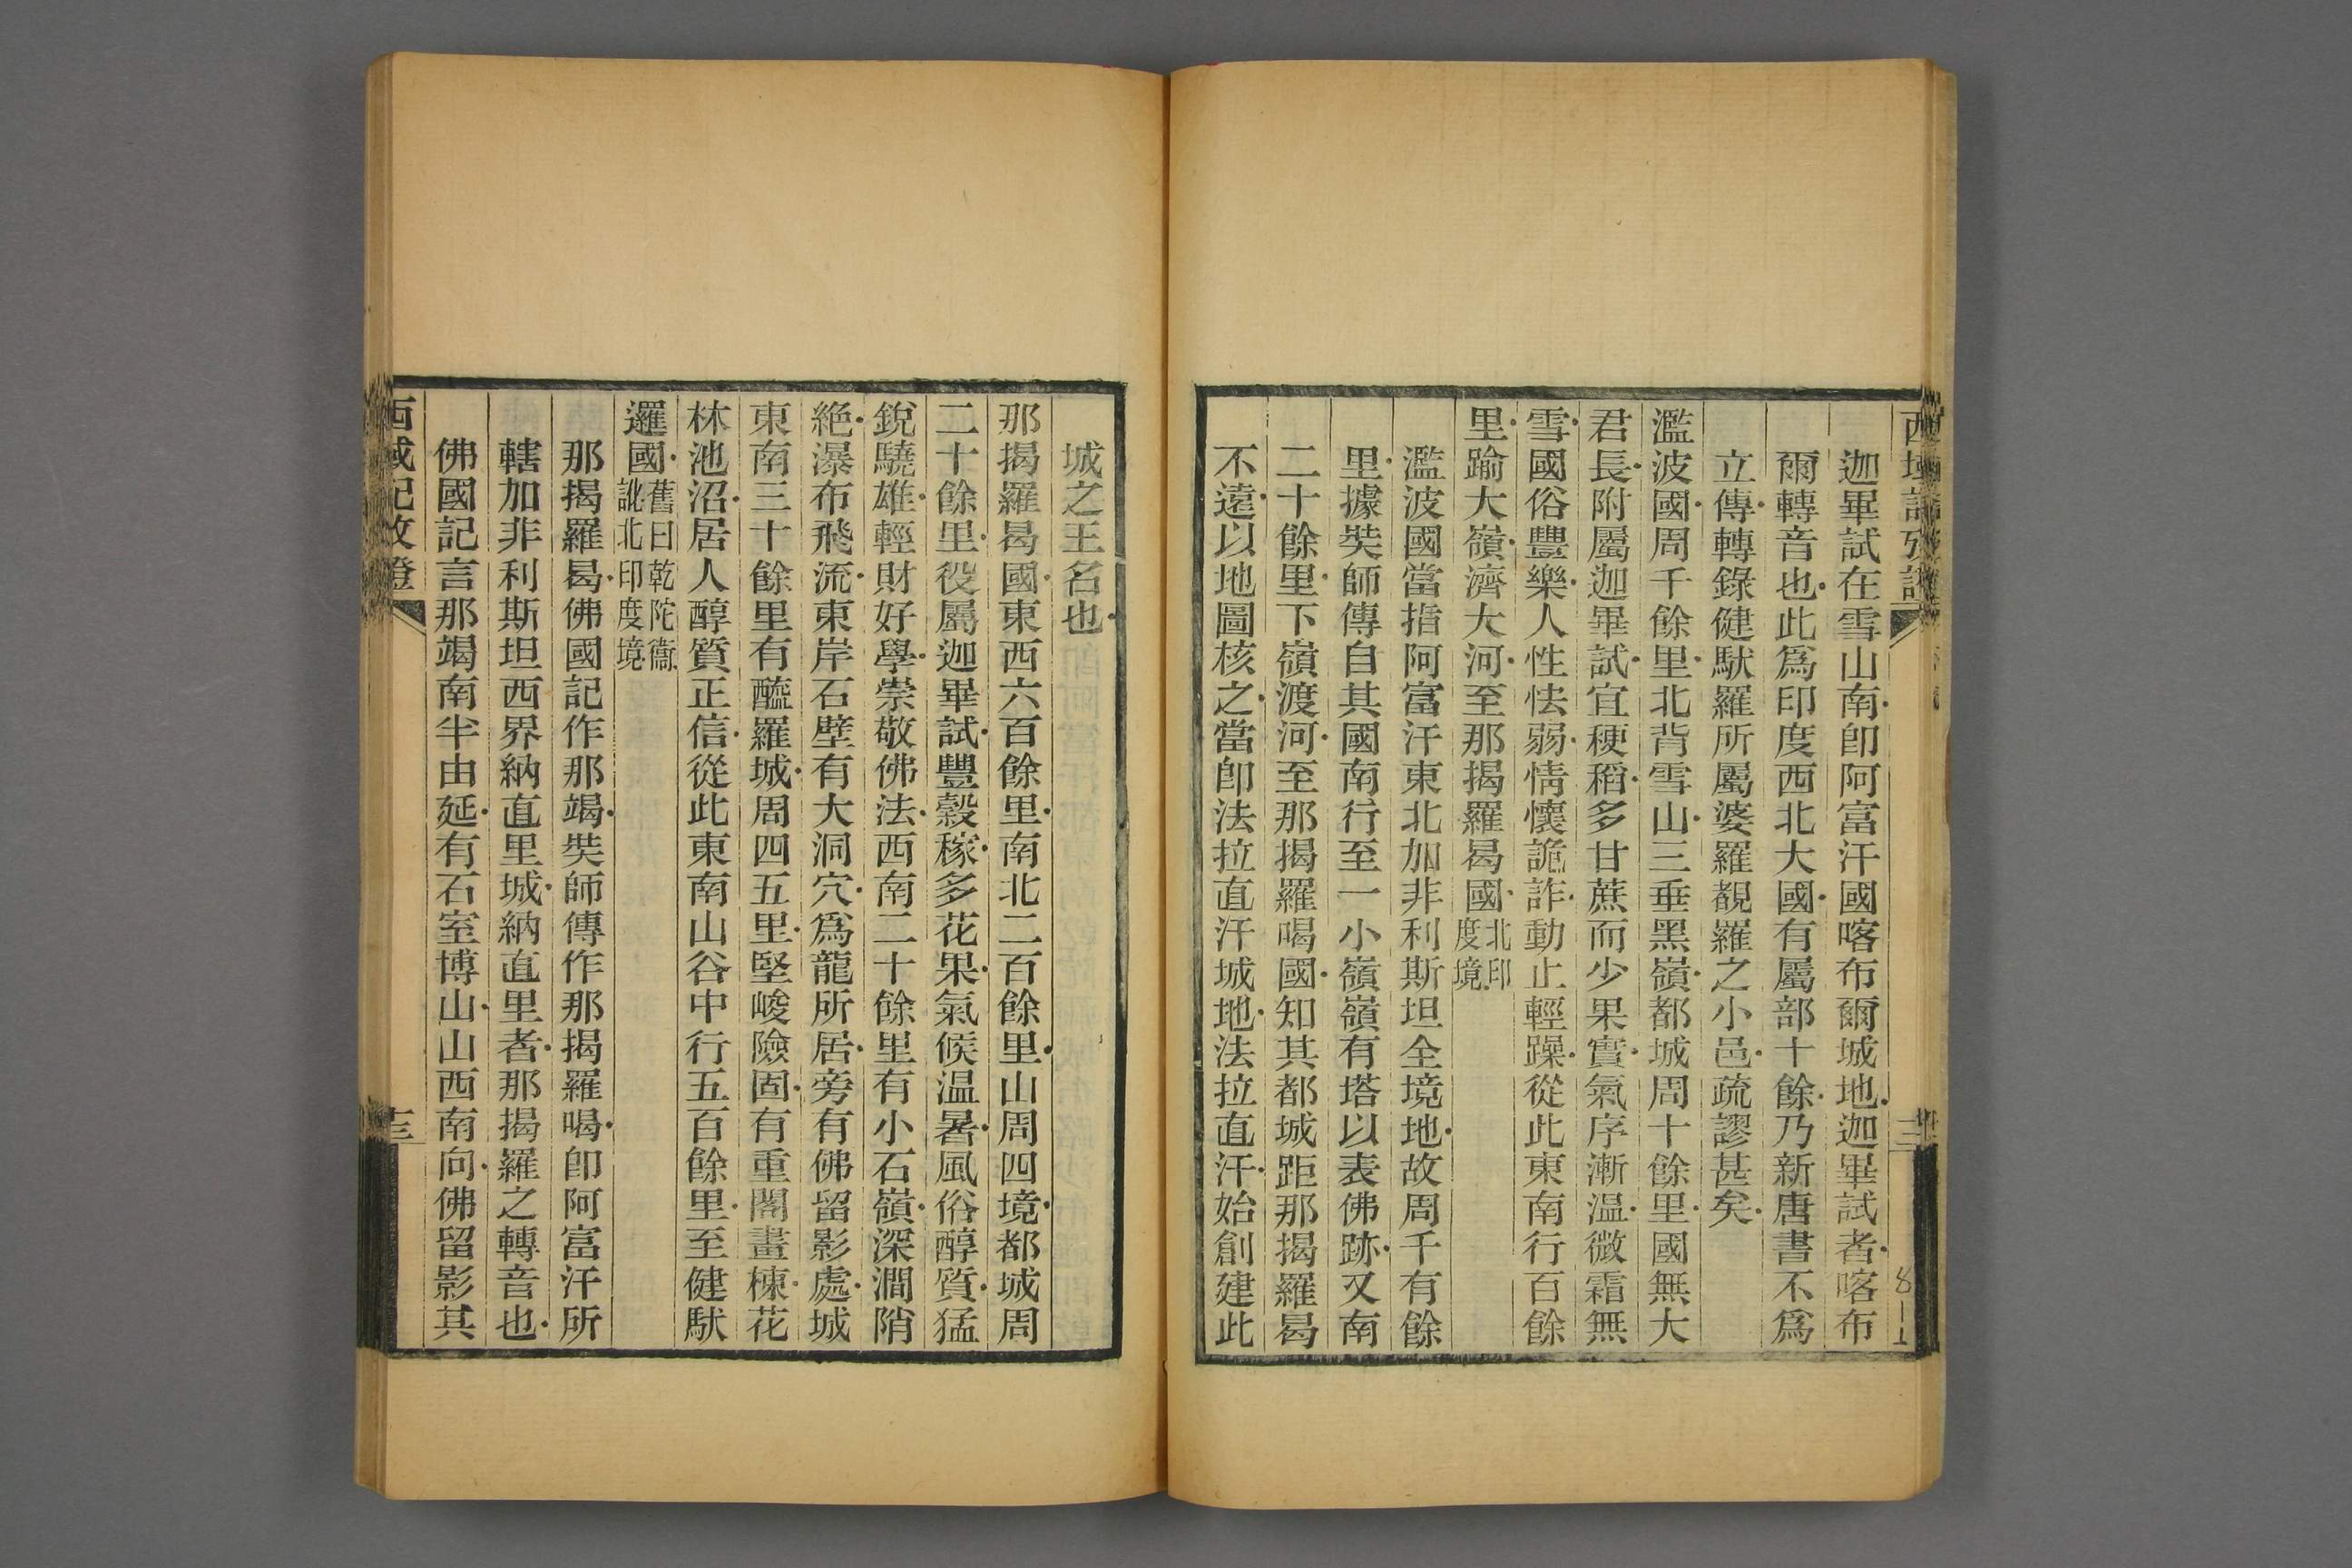 迦畢試在雪山南卽阿富汗國喀布爾城地迦畢試者喀布
爾轉音也此爲印度西北大國有屬部十餘乃新唐書不爲
立傳轉錄健馱羅所屬婆羅覩羅之小邑疏謬甚矣
濫波國周千餘里北背雪山三垂黑嶺都城周十餘里國無大
君長附屬迦畢試宜稉稻多甘蔗而少果實氣序漸温微霜無
雪國俗豐樂人性怯弱情懷詭詐動止輕躁從此東南行百餘
里踰大嶺濟大河至那揭羅曷國北印度境
濫波國當指阿富汗東北加非利斯坦全境地故周千有餘
里據奘師傳自其國南行至一小嶺嶺有塔以表佛跡又南
二十餘里下嶺渡河至那揭羅喝國知其都城距那揭羅曷
不遠以地圖核之當卽法拉直汗城地法拉直汗始創建此
城之王名也
那揭羅曷國東西六百餘里南北二百餘里山周四境都城周
二十餘里役屬迦畢試豐穀稼多花果氣候温暑風俗醇質猛
銳驍雄輕財好學崇敬佛法西南二十餘里有小石嶺深澗陗
絶瀑布飛流東岸石壁有大洞穴爲龍所居旁有佛留影處城
東南三十餘里有醯羅城周四五里堅峻險固有重閣畫棟花
林池沼居人醇質正信從此東南山谷中行五百餘里至健馱
邏國舊曰乾陀衞訛北印度境
那揭羅曷佛國記作那竭奘師傳作那揭羅喝卽阿富汗所
轄加非利斯坦西界納直里城納直里者那揭羅之轉音也
佛國記言那竭南半由延有石室博山山西南向佛留影其
西域記攷證
十三